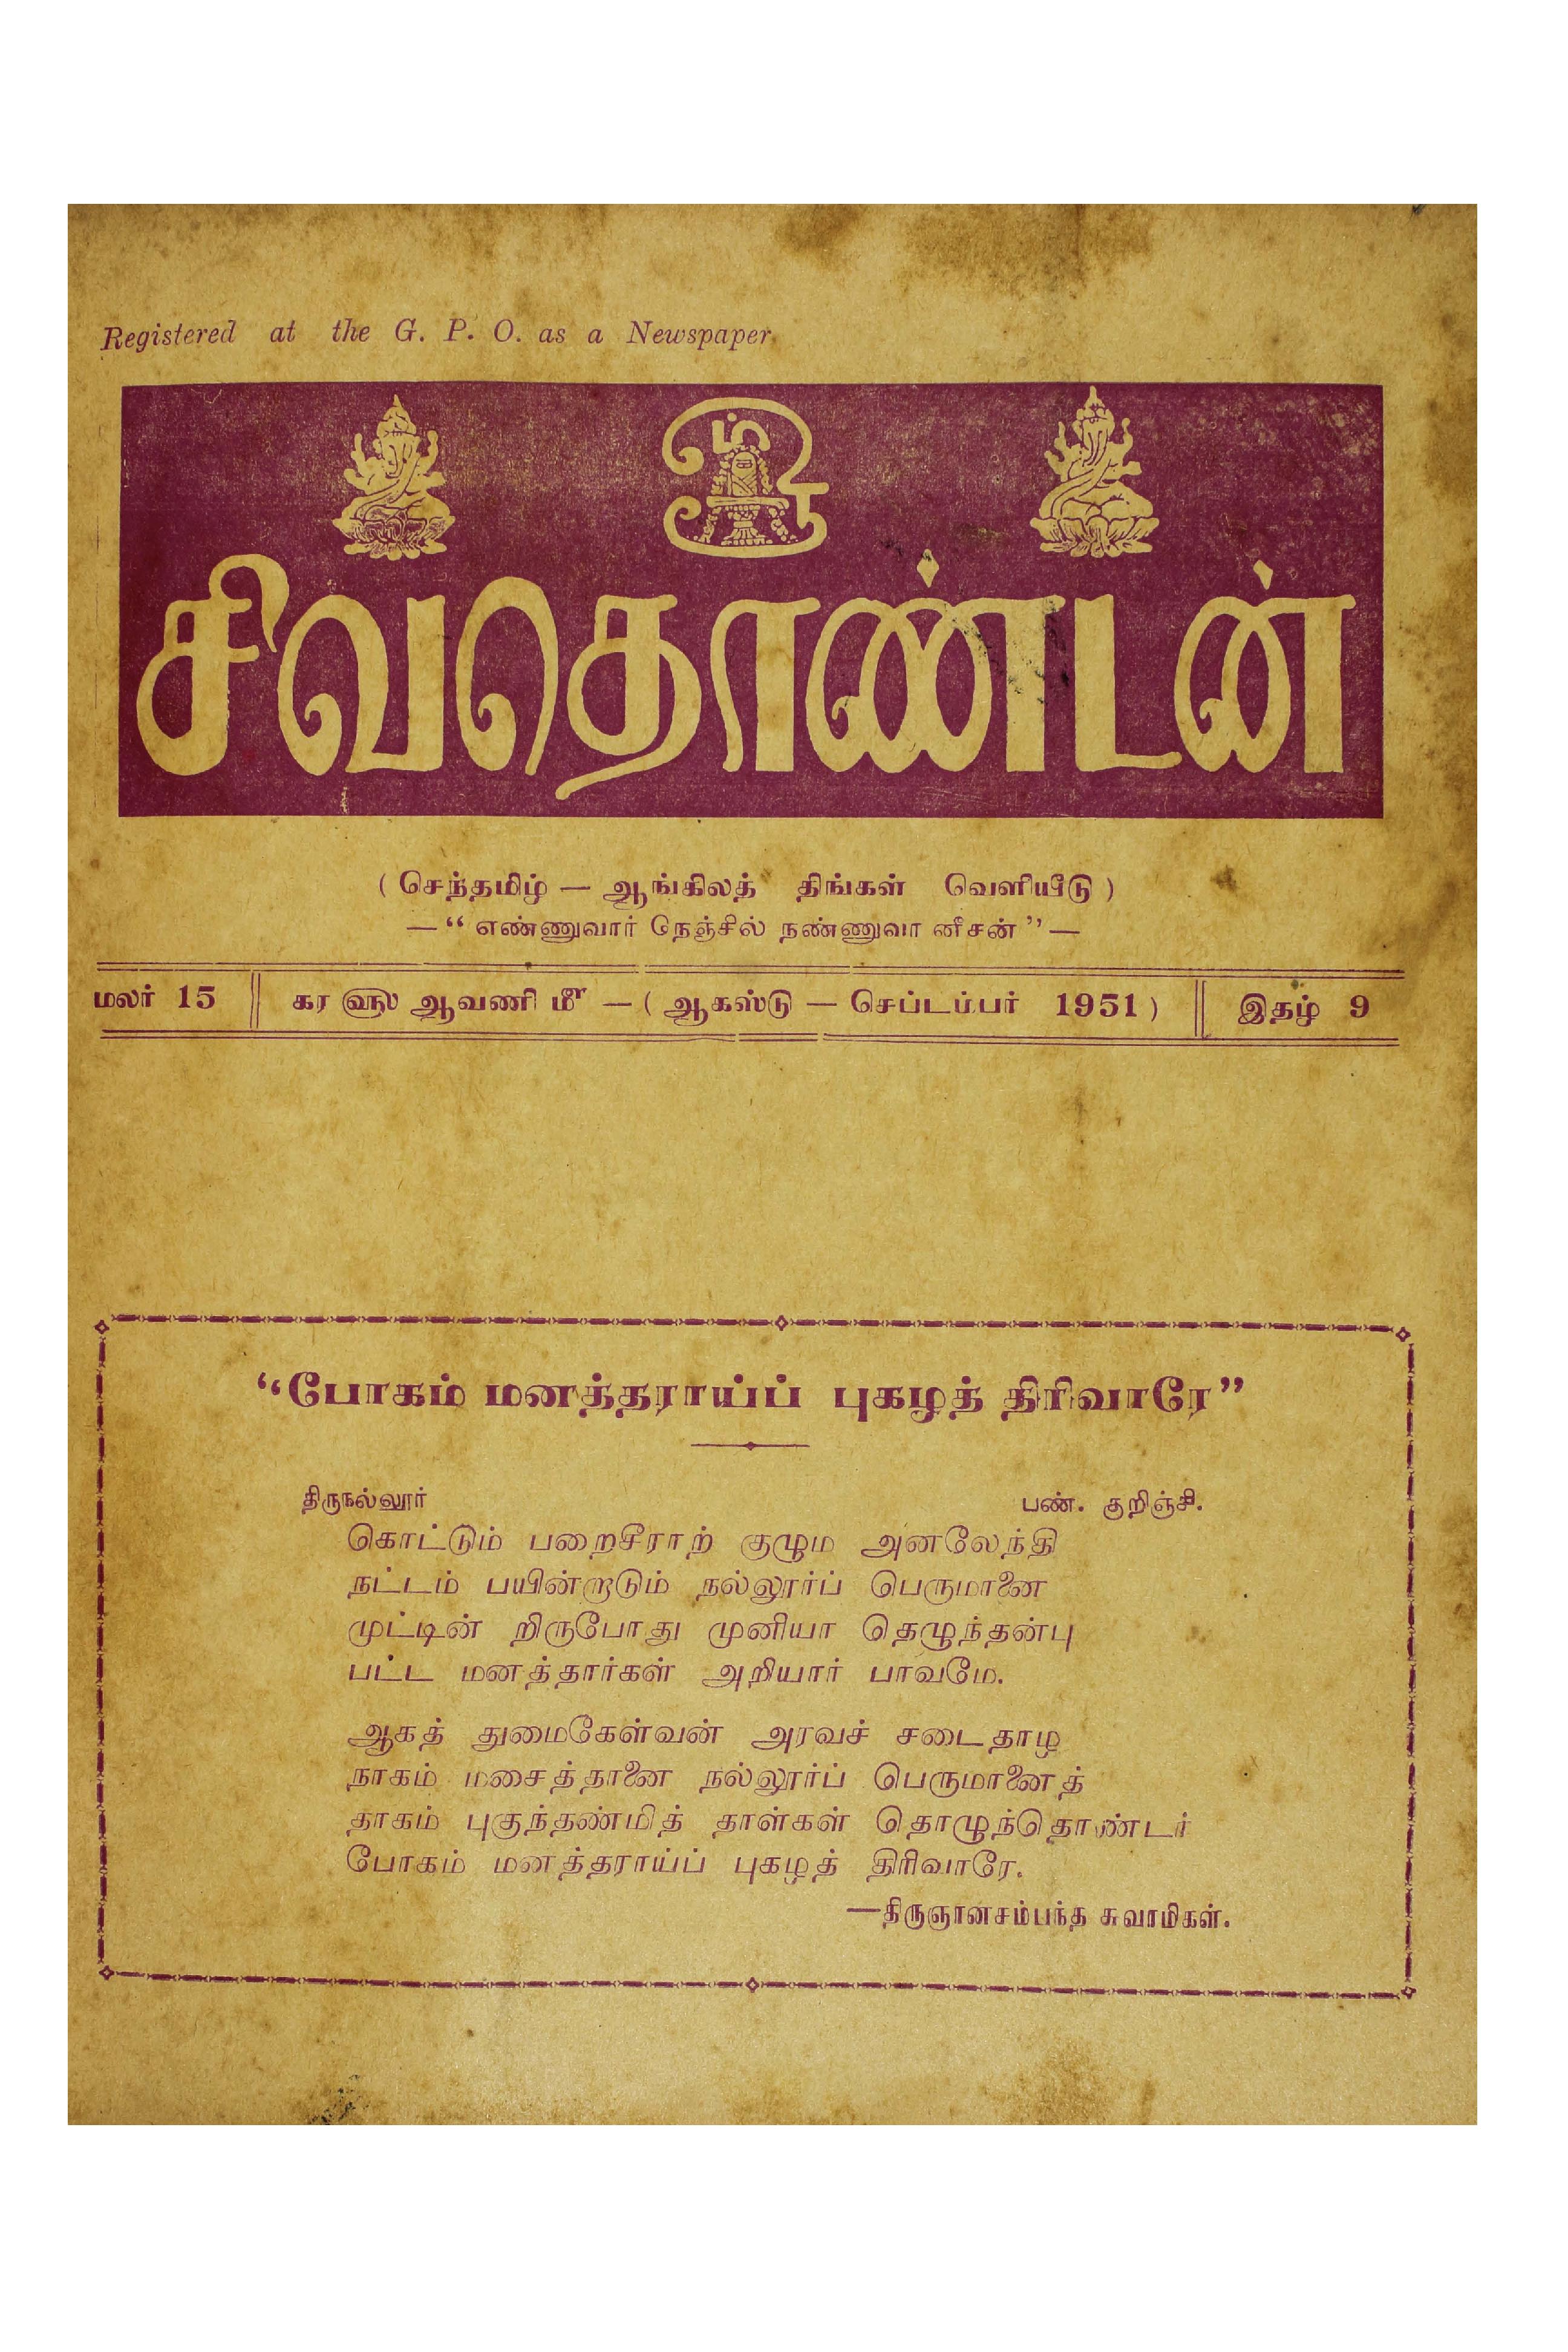 Registered at the G. P. O. as a Newspaper.
ஓம்
சிவதொண்டன்
( செந்தமிழ் — ஆங்கிலத் திங்கள் வெளியீடு )
— “ எண்ணுவார் நெஞ்சில் நண்ணுவா னீசன் ” —
மலர் 15 கர ௵ ஆவணி ௴ — ( ஆகஸ்டு — செப்டம்பர் 1951 ) இதழ் 9
“போகம் மனத்தராய்ப் புகழத் திரிவாரே”
திருநல்லூர் பண். குறிஞ்சி.
கொட்டும் பறைசீராற் குழும அனலேந்தி
நட்டம் பயின்றாடும் நல்லூர்ப் பெருமானை
முட்டின் றிருபோது முனியா தெழுந்தன்பு
பட்ட மனத்தார்கள் அறியார் பாவமே.
ஆகத் துமைகேள்வன் அரவச் சடைதாழ
நாகம் மசைத்தானை நல்லூர்ப் பெருமானைத்
தாகம் புகுந்தண்மித் தாள்கள் தொழுந்தொண்டர்
போகம் மனத்தராய்ப் புகழத் திரிவாரே.
—திருஞானசம்பந்த சுவாமிகள்.